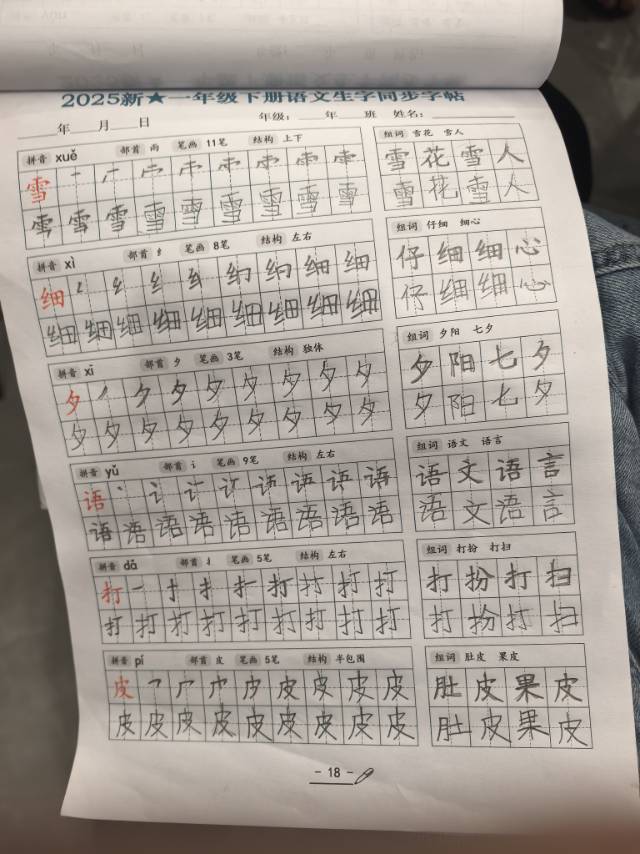 2025新★一年级下册语文生字同步字帖
____年____月____日 年级：____年____班 姓名：
拼音 xuě 部首 雨 笔画 11笔 结构 上下
组词 雪花 雪人
雪
雪 花 雪 人
雪 雪 雪 雪 雪 雪 雪 雪 雪
雪 花 雪 人
拼音 xì 部首 纟 笔画 8笔 结构 左右
组词 仔细 细心
细 细 细
仔 细 细 心
细 细 细 细 细 细 细 细 细
仔 细 细 心
拼音 xī 部首 夕 笔画 3笔 结构 独体
组词 夕阳 七夕
夕 夕 夕 夕 夕 夕 夕 夕
夕 阳 七 夕
夕 夕 夕 夕 夕 夕 夕 夕 夕
夕 阳 七 夕
拼音 yǔ 部首 讠 笔画 9笔 结构 左右
组词 语文 语言
语 语 语
语 文 语 言
语 语 语 语 语 语 语 语 语
语 文 语 言
拼音 dǎ 部首 扌 笔画 5笔 结构 左右
组词 打扮 打扫
打 一 扌 打 打 打 打
打 扮 打 扫
打 打 打 打 打 打 打 打 打
打 扮 打 扫
拼音 pí 部首 皮 笔画 5笔 结构 半包围
组词 肚皮 果皮
皮 皮 皮 皮 皮
肚 皮 果 皮
皮 皮 皮 皮 皮 皮 皮 皮 皮
肚 皮 果 皮
- 18 -